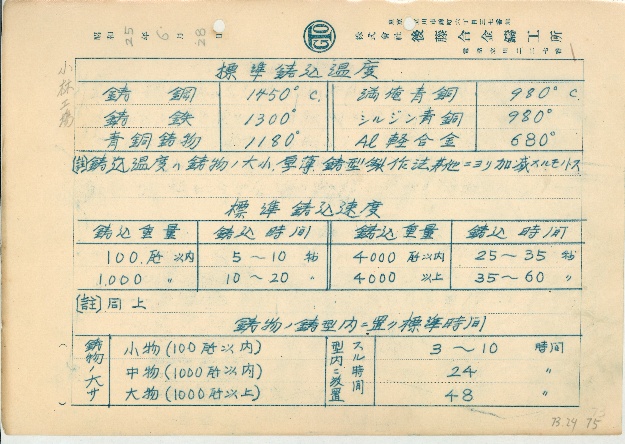 昭和25年6月28日
株式会社 後藤合金鑄工所
GTO
小林工場
標準鋳込温度
鋳鋼 1450°C. 満俺青銅 980°C.
鋳鉄 1300° シルジン青銅 980°
青銅鋳物 1180° Al軽合金 680°
[註]鋳込温度ハ鋳物ノ大小、厚薄鋳型製作法其他ニヨリ加減スルモノトス
標準鋳込速度
鋳込重量 鋳込時間 鋳込重量 鋳込時間
100.瓩以内 5〜10秒 4000瓩以内 25〜35秒
1.000 〃 10〜20 〃 4000 以上 35〜60 〃
[註]同上
鋳物ノ鋳型内ニ置ク標準時間
鋳物ノ大サ 小物(100瓩以内) 型内ニ放置スル時間 3〜10 時間
中物(1000瓩以内) 24 〃
大物(1000瓩以上) 48 〃
73.29 75